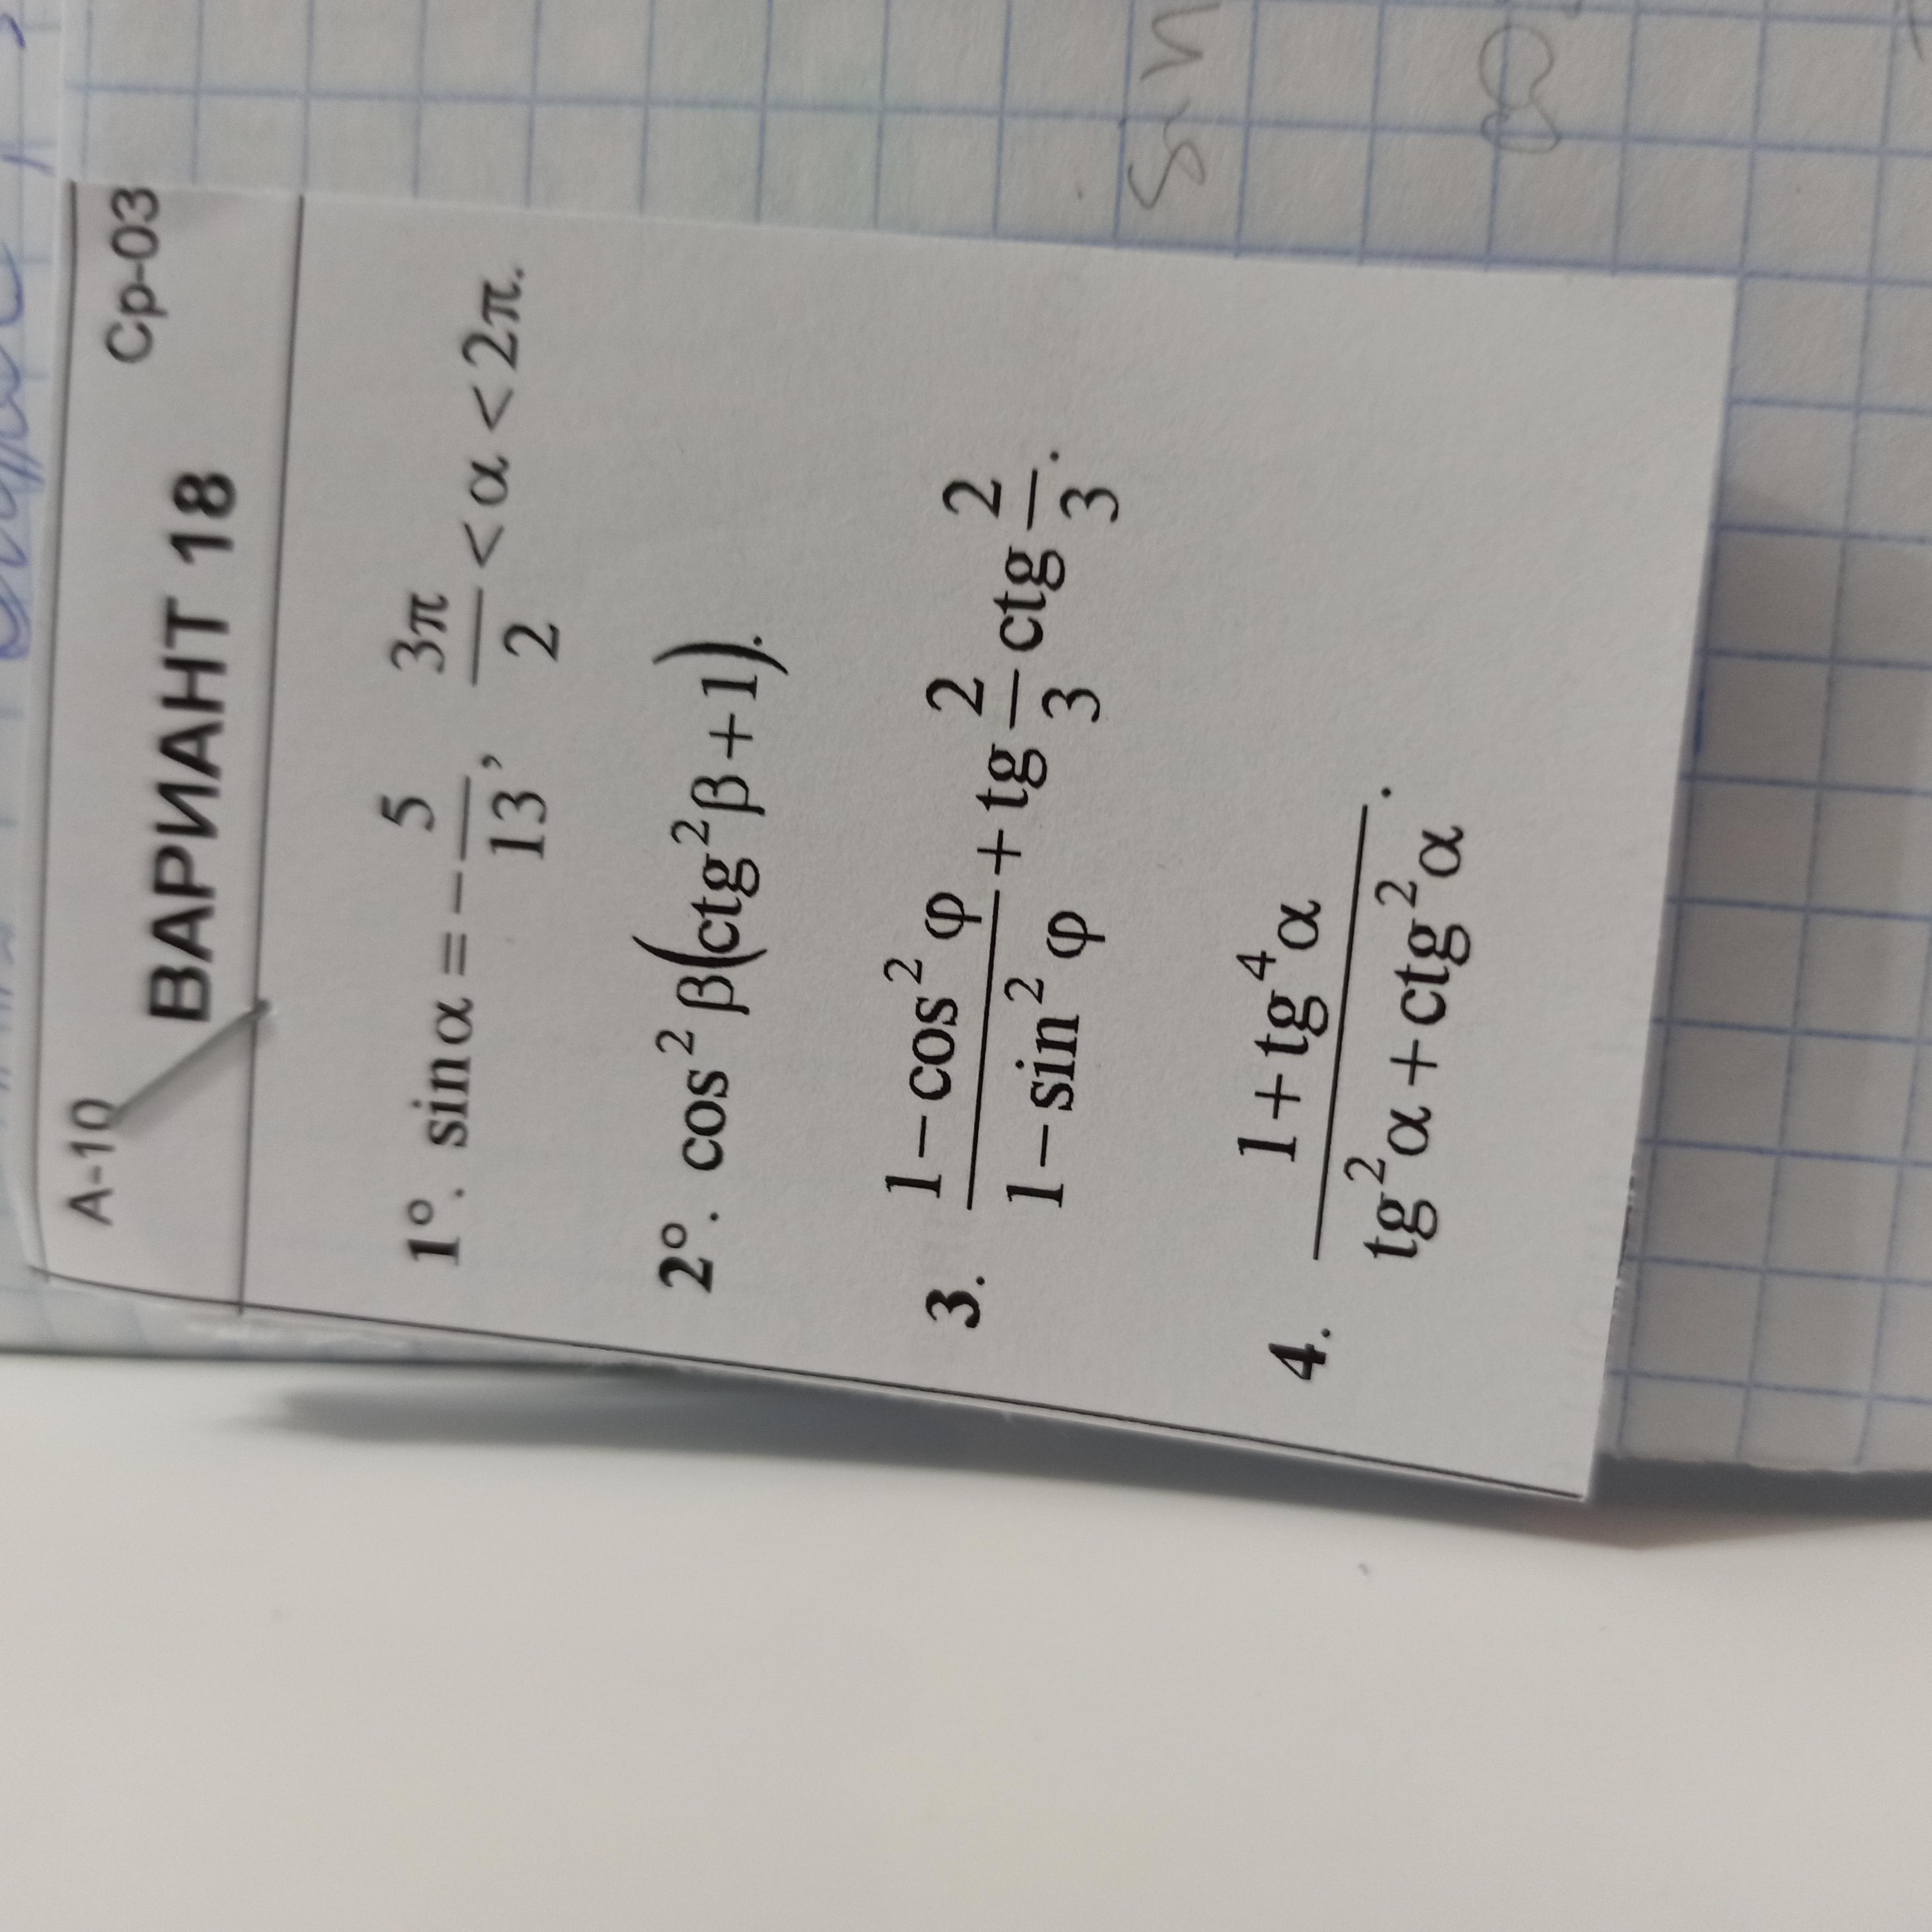 А-10 ВАРИАНТ 18 Ср-03
1°. sinα = −5/13, 3π/2 < α < 2π.
2°. cos² β(ctg²β + 1).
3. (1 − cos² φ)/(1 − sin² φ) + tg 2/3 ctg 2/3.
4. (1 + tg⁴α)/(tg²α + ctg²α).